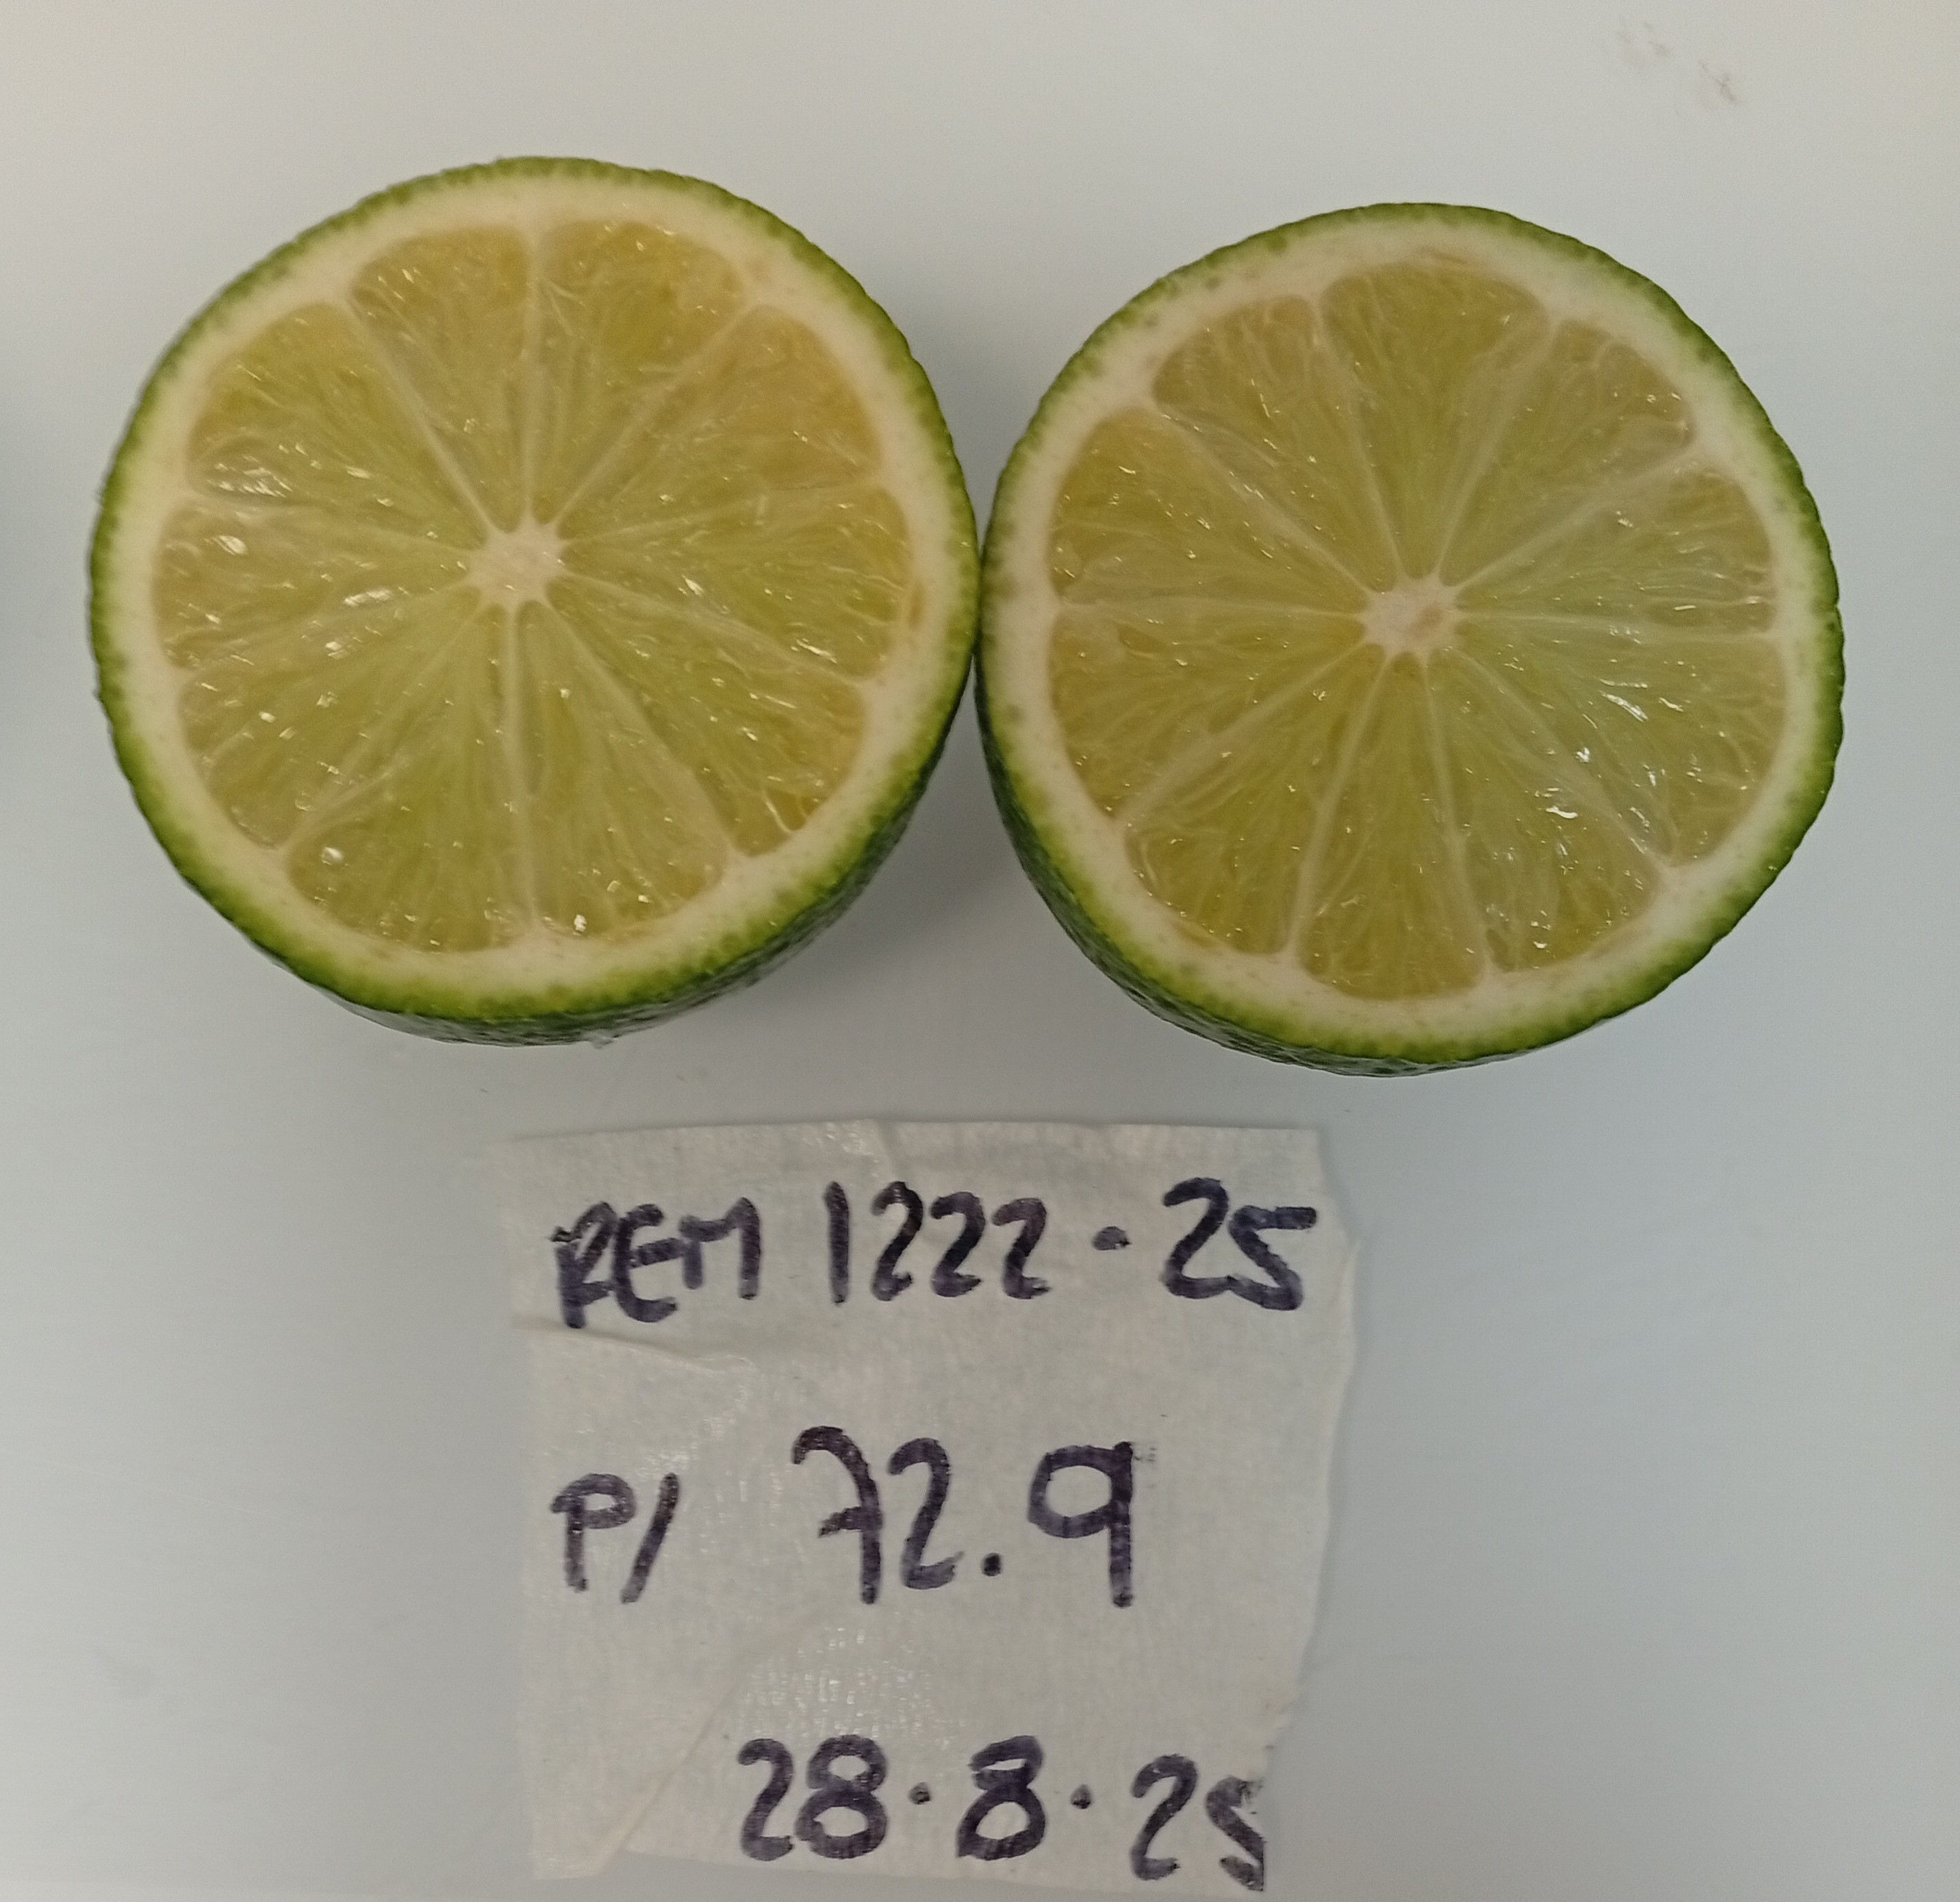 REM 1222 · 25
P/ 72.9
28 · 8 · 25